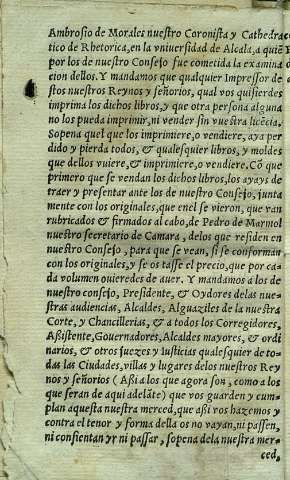 Ambrosio de Morales nuestro Coronista y Cathedra
tico de Rhetorica, en la vniuersidad de Alcala, a quiē
por los de nuestro Consejo fue cometida la examina
cion dellos. Y mandamos que qualquier Impressor de
stos nuestros Reynos y señorios, qual vos quisierdes
imprima los dichos libros, y que otra persona alguna
no los pueda imprimir, ni vender sin vuestra licēcia.
Sopena quel que los imprimiere, o vendiere, aya per
dido y pierda todos, & qualesquier libros, y moldes
que dellos vuiere, & imprimiere, o vendiere. Cō que
primero que se vendan los dichos libros, los ayays de
traer y presentar ante los de nuestro Consejo, junta
mente con los originales, que enel se vieron, que van
rubricados & firmados al cabo, de Pedro de Marmol
nuestro secretario de Camara, delos que residen en
nuestro Consejo, para que se vean, si se conforman
con los originales, y se os tasse el precio, que por ca-
da volumen ouieredes de auer. Y mandamos a los de
nuestro consejo, Presidente, & Oydores delas nue-
stras audiencias, Alcaldes, Alguaziles de la nuestra
Corte, y Chancillerias, & a todos los Corregidores,
Assistente, Gouernadores, Alcaldes mayores, & ordi
narios, & otros juezes y Iusticias qualesquier de to-
das las Ciudades, villas y lugares delos nuestros Rey
nos y señorios (Assi a los que agora son, como a los
que seran de aqui adelāte) que vos guarden y cum-
plan aquesta nuestra merced, que assi vos hazemos y
contra el tenor y forma della os no vayan, ni passen,
ni consientan yr ni passar, sopena dela nuestra mer-
ced,